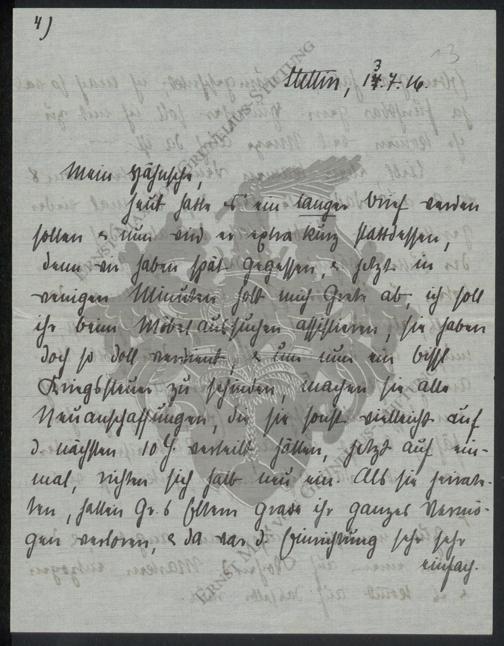 4)
Stettin, 13.7.16.
Mein Hähnschi,
heut hatte es ein langer Brief werden
sollen & nun wird er extra kurz stattdessen,
denn wir haben spät gegessen, & jetzt in
wenigen Minuten holt mich Grete ab, ich soll
ihr beim Möbelaussuchen assistieren, sie haben
doch so doll verdient, & um nun ein bissl
Kriegssteuer zu schinden, machen sie alle
Neuanschaffungen, die sie sonst vielleicht auf
d. nächsten 10 J. verteilt hätten, jetzt auf ein-
mal, richten sich halb neu ein. Als sie heirate-
ten, hatten Gr.s Eltern grade ihr ganzes Vermö-
gen verloren, & da war d. Einrichtung sehr sehr
einfach.
ERNST VON GRIENHAUS-STIFTUNG